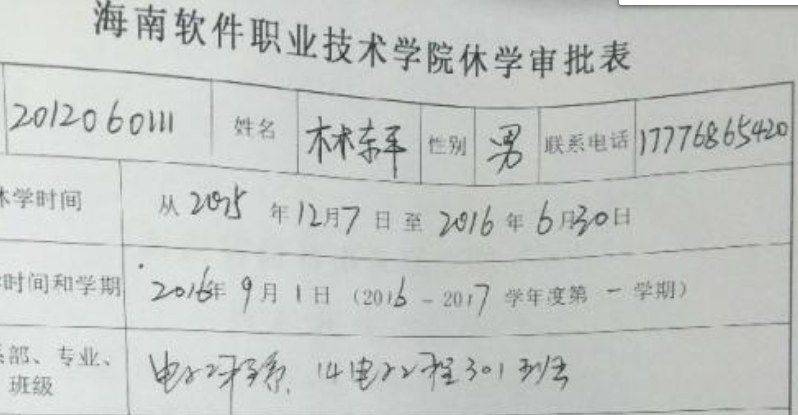 海南软件职业技术学院休学审批表
2012060111 姓名 林东平 性别 男 联系电话 17776865420
休学时间 从 2015 年 12月 7 日 至 2016 年 6月30日
时间和学期 2016年 9 月 1 日 (2016 - 2017 学年度第 一 学期)
部、专业、班级 电子工程系 14电子工程301班